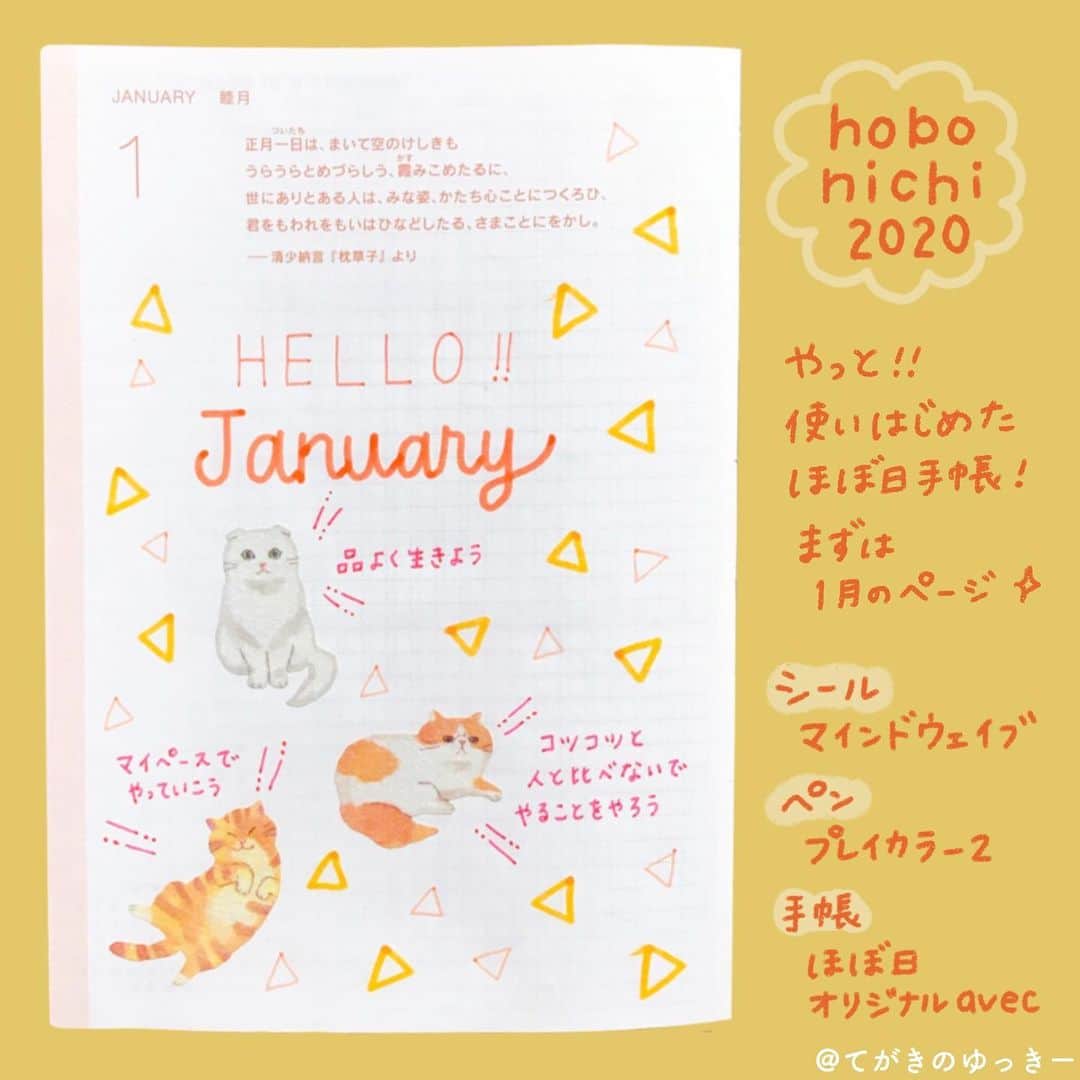 JANUARY 睦月
1
ついたち
正月一日は、まいて空のけしきも
かす
うらうらとめづらしう、霞みこめたるに、
世にありとある人は、みな姿、かたち心ことにつくろひ、
君をもわれをもいはひなどしたる、さまことにをかし。
── 清少納言『枕草子』より
HELLO!!
January
品よく生きよう
コツコツと
人と比べないで
やることをやろう
マイペースで
やっていこう
hobo
nichi
2020
やっと!!
使いはじめた
ほぼ日手帳!
まずは
1月のページ
シール
マインドウェイブ
ペン
プレイカラー2
手帳
ほぼ日
オリジナルavec
@てがきのゆっきー